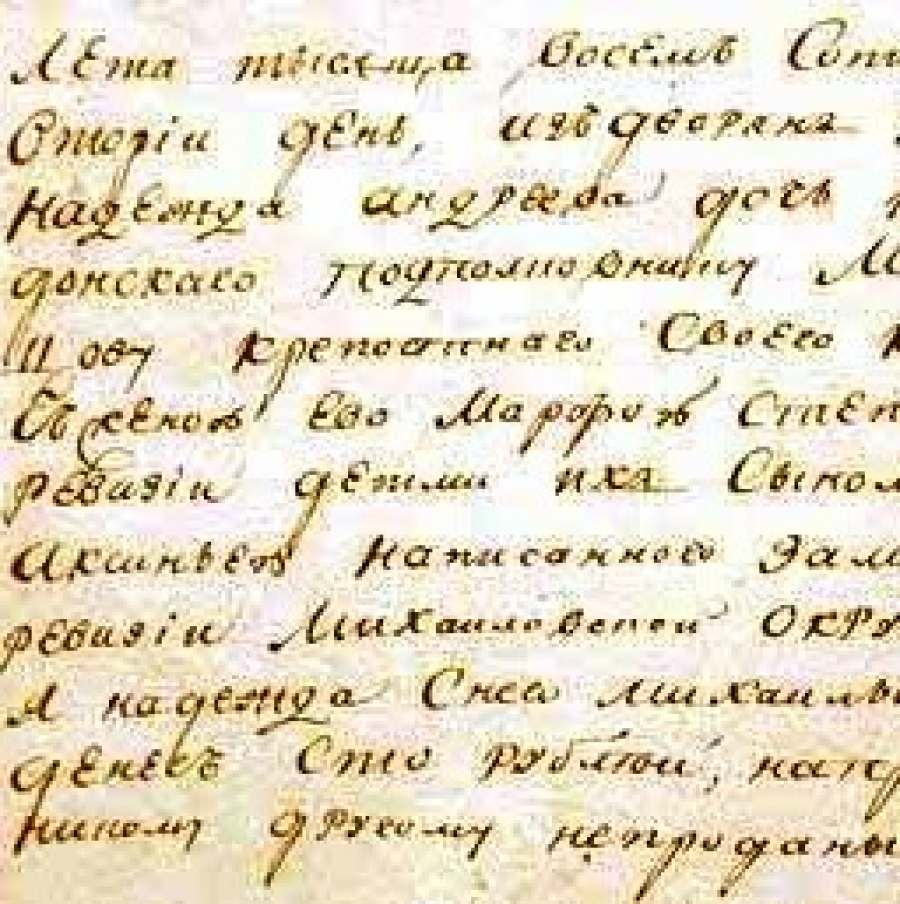 Лета тысеща восемъ Сотъ
Вторiи день, изъ дворянъ
Надежда андреева дочь
донскаго подполковнику
цову крепостнаго Своего
Съ женою Ево Марфою Степ
ревизiи детми ихъ Сыном
Аксиньею написанного Зам
ревизiи Михаиловской ОКРУ
Я надежда Снево михаилы
денегъ Сто рублей, напр
никому другому непроданы